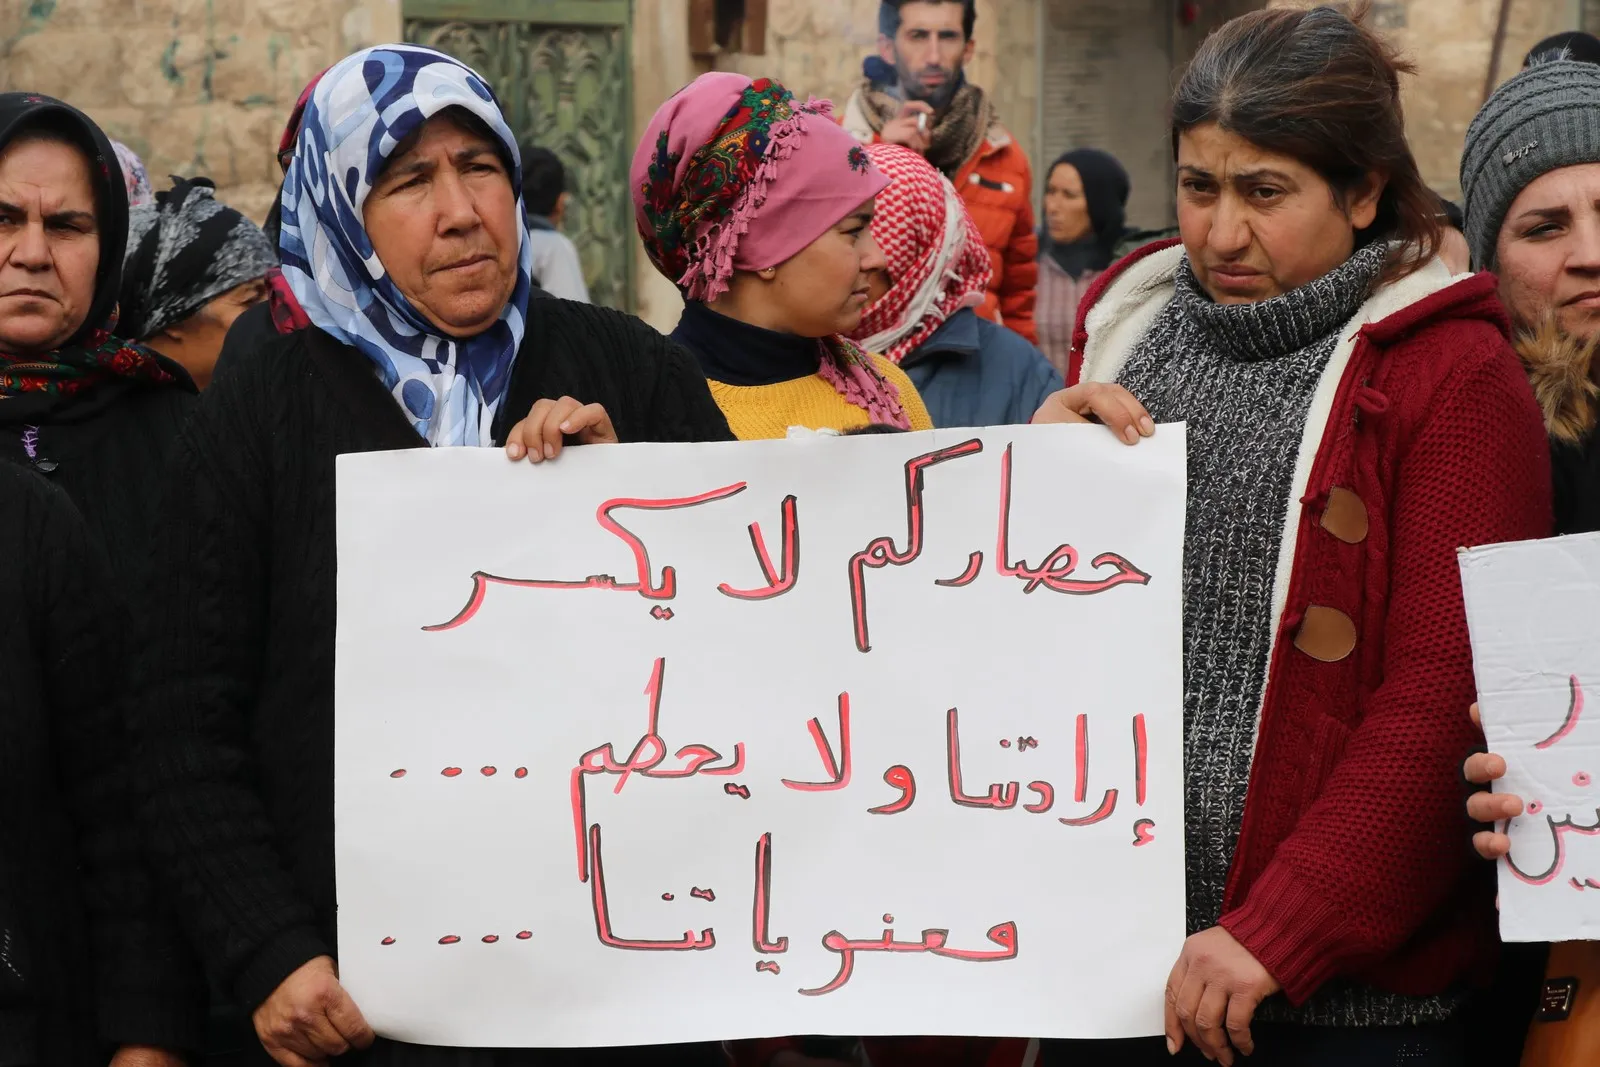 حصاركم لا يكسر
إرادتنا ولا يحطم ....
معنوياتنا ....
ين